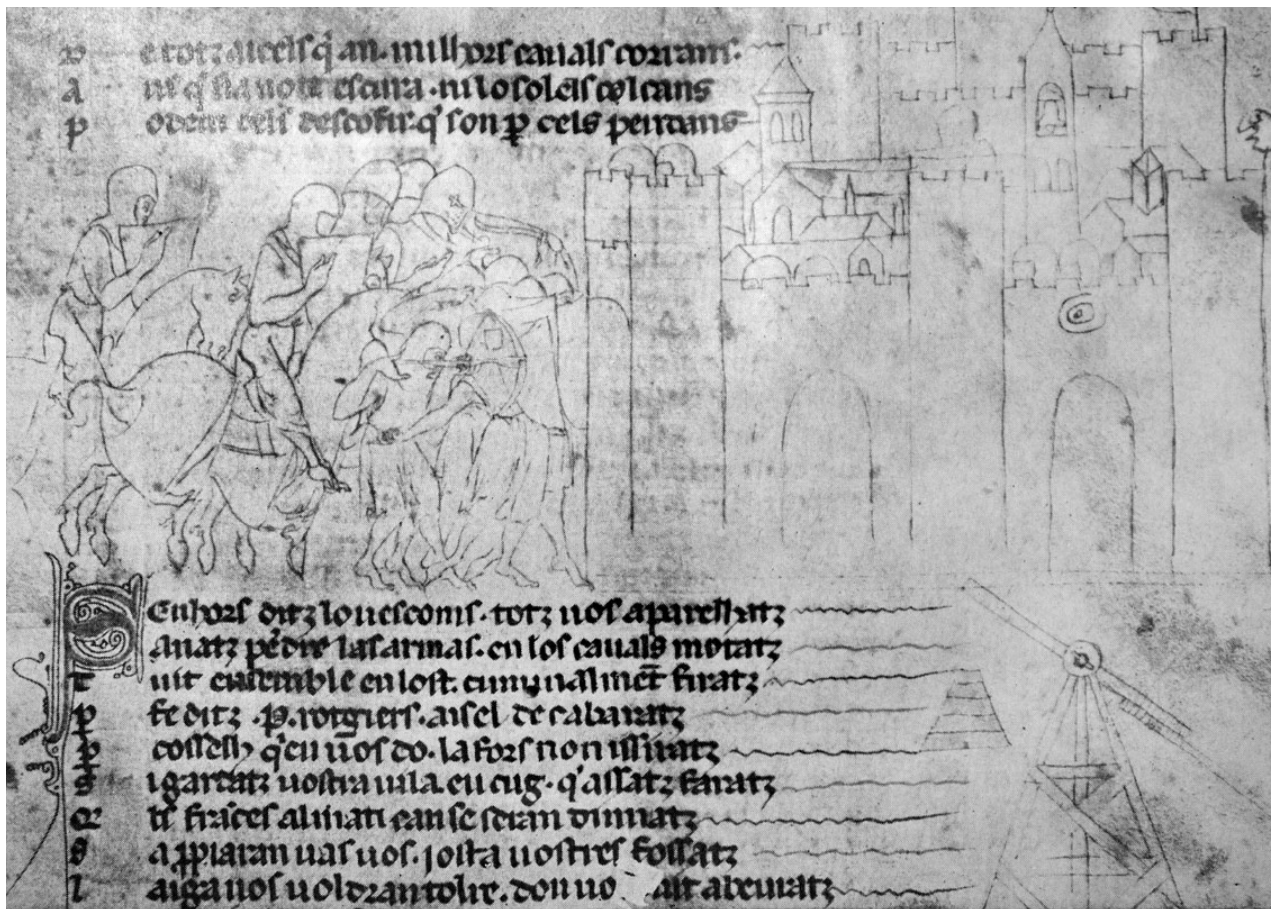 D e totz aicels q̃ an · milhors cauals corrans·
A ns q̃ sia noitz escura · ni lo soleils colcans
P odem cels descofir· q̃ son ꝑ cels pendans
Senhors ditz lo uescoms · totz uos aparelhatz
Anatz pẽdre las armas · en los cauals mõtatz
T uit ensemble en lost · cuminalmẽt firatz
P fe ditz · P · rotgiers · aisel de cabaratz
P cosselh q̃u uos do · la fors non issiratz
S i gardatz uostra uila eu cug · q̃ assatz faratz
li frãces al mati can se seran dinnatz
S uas uos · josta uostres fossatz
L aiga uos uoldran tolre · don uo abeuratz